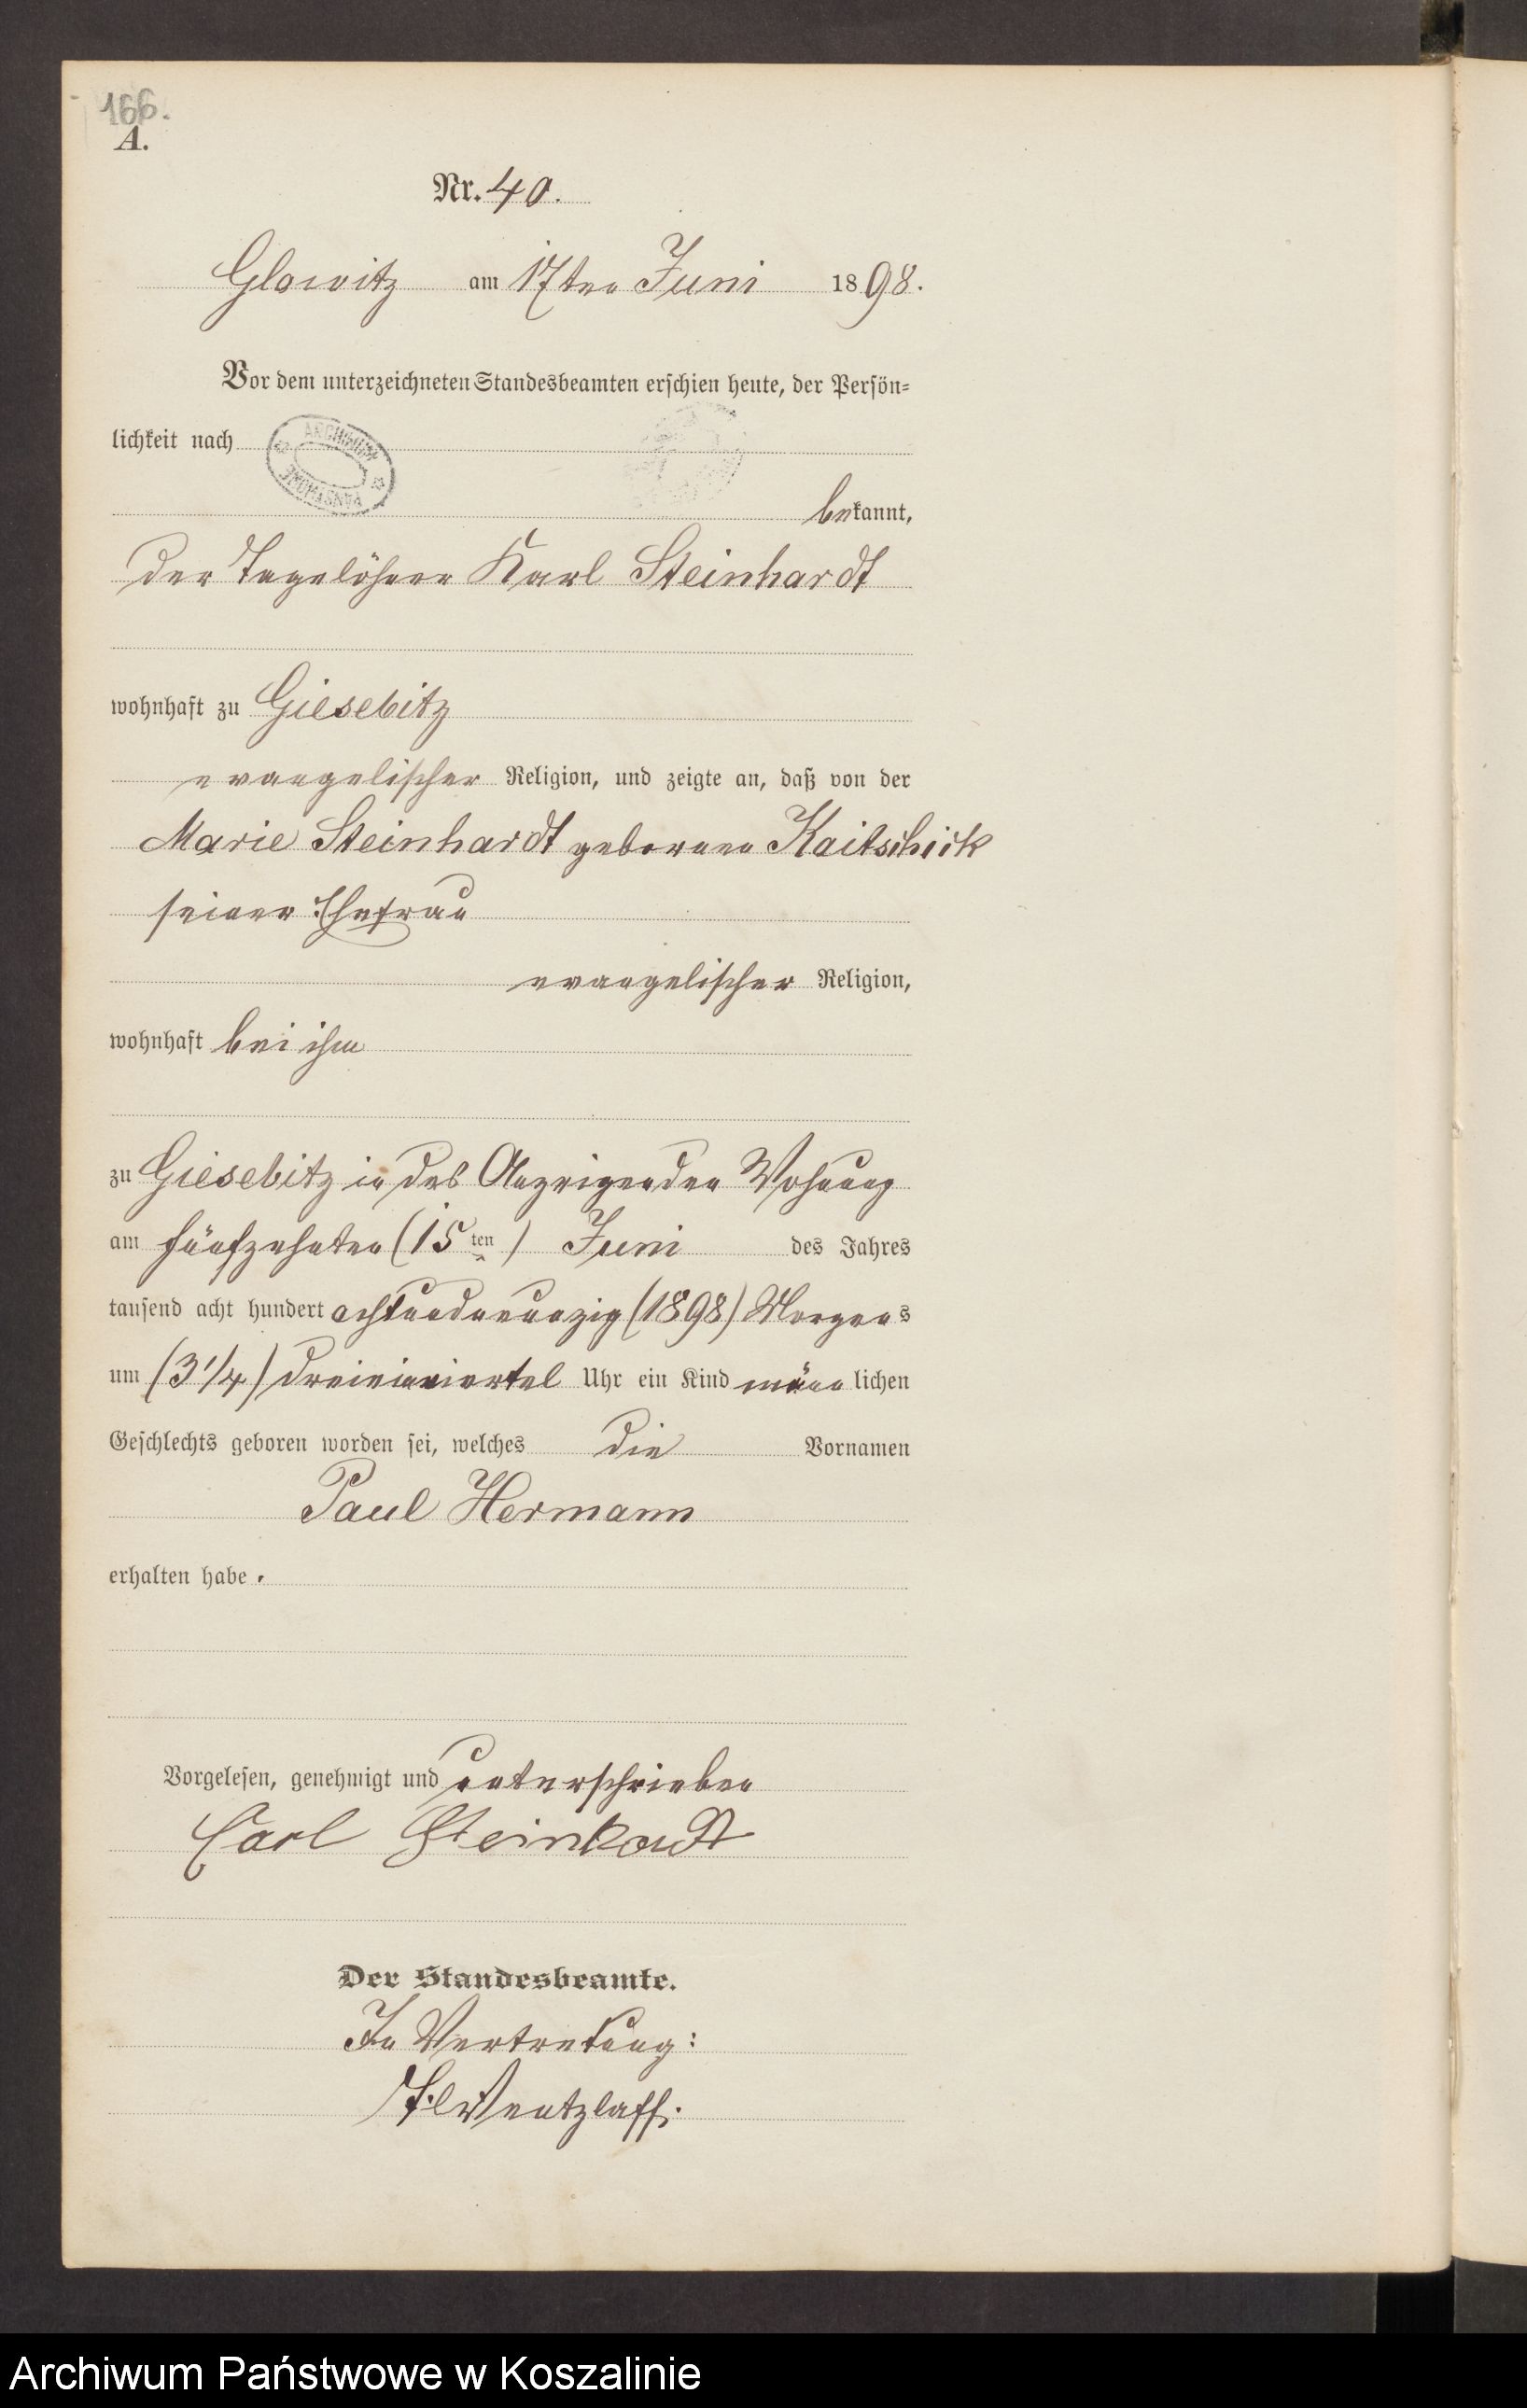 166.
A.
Nr. 40.
Glowitz am 17ten Juni 1898.
Vor dem unterzeichneten Standesbeamten erschien heute, der Persön-
lichkeit nach
ARCHIWUM PAŃSTWOWE
bekannt,
der Tagelöhner Karl Steinhardt
wohnhaft zu Giesebitz
evangelischer Religion, und zeigte an, daß von der
Marie Steinhardt geborenen Kaitschick
seiner Ehefrau
evangelischer Religion,
wohnhaft bei ihm
zu Giesebitz in des Anzeigenden Wohnung
am fünfzehnten (15ten) Juni des Jahres
tausend acht hundert achtundneunzig (1898) Morgens
um (3 1/4) dreieinviertel Uhr ein Kind männlichen
Geschlechts geboren worden sei, welches die Vornamen
Paul Hermann
erhalten habe.
Vorgelesen, genehmigt und unterschrieben
Carl Steinhardt
Der Standesbeamte.
In Vertretung:
Wentzlaff.
Archiwum Państwowe w Koszalinie